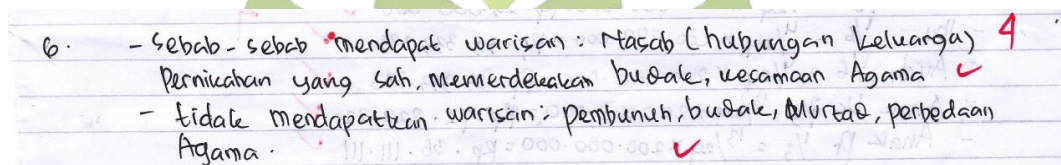 6. - Sebab-sebab mendapat warisan: Nasab (hubungan keluarga) 4
Pernikahan yang sah, memerdekakan budak, kesamaan Agama
- tidak mendapatkan warisan: pembunuh, budak, Murtad, perbedaan
Agama.